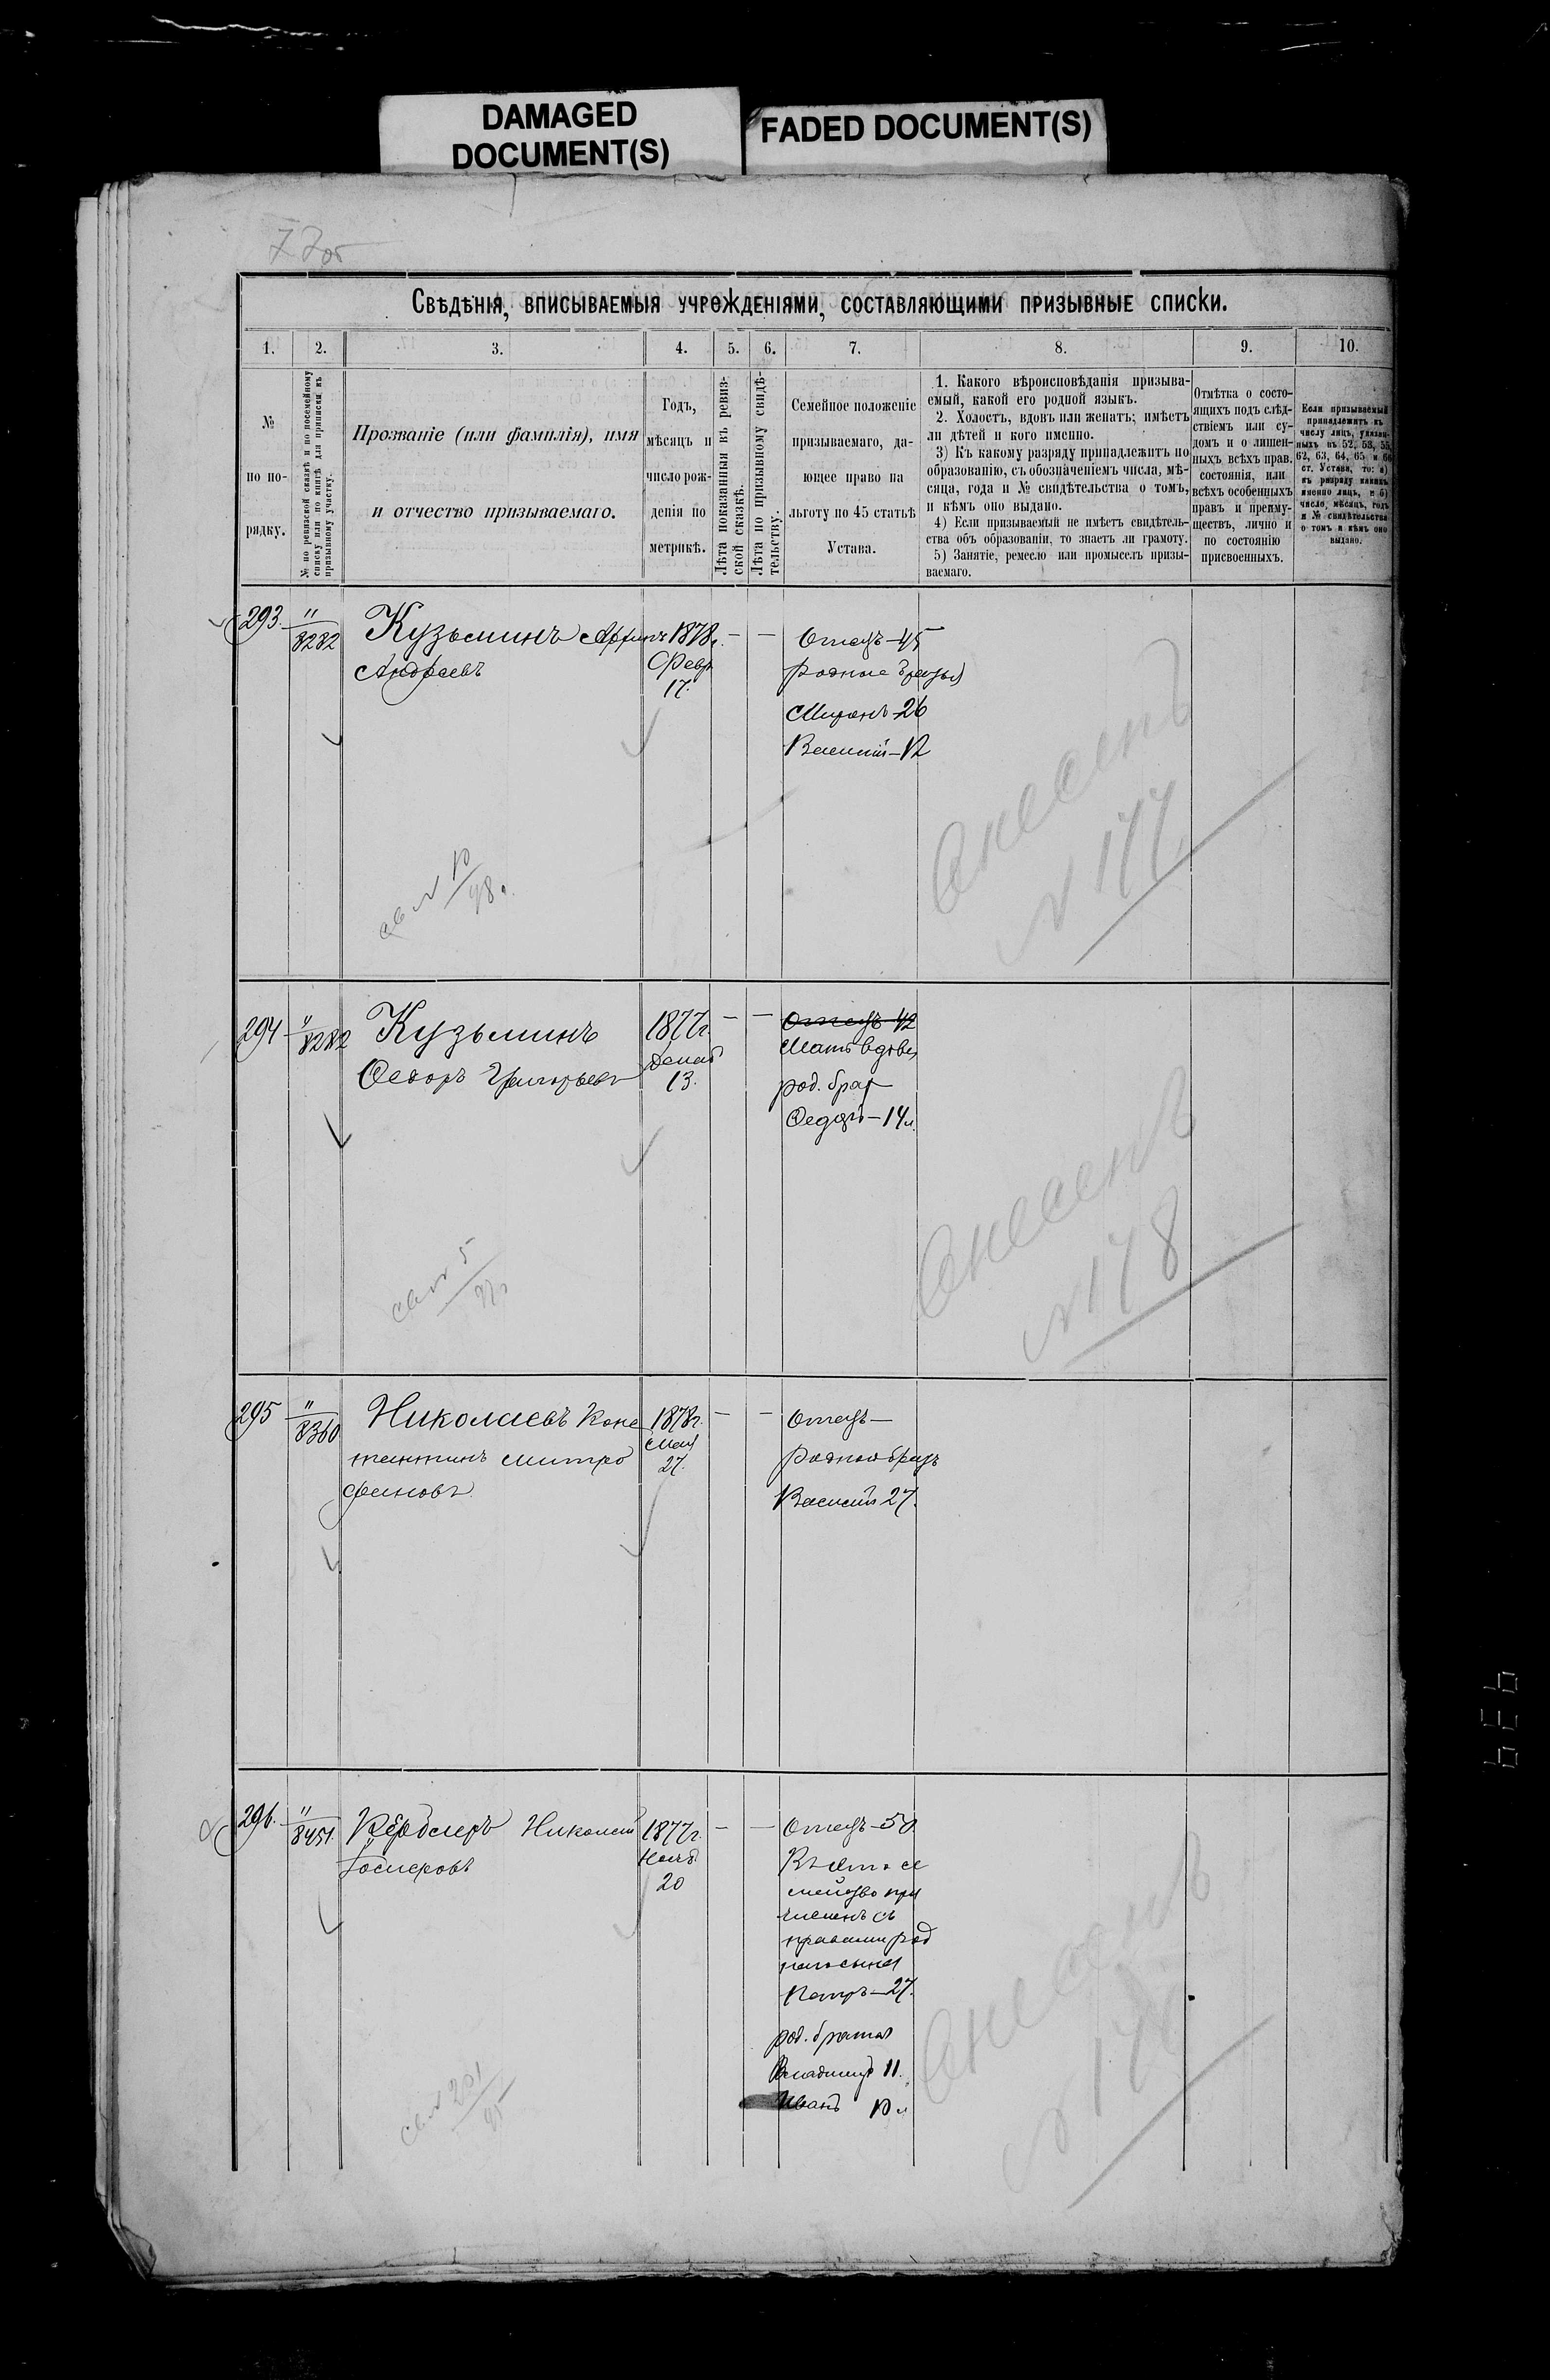 DAMAGED
DOCUMENT(S)
FADED DOCUMENT(S)
77об
Свѣдѣнія, вписываемыя учрежденіями, составляющими призывные списки.
1. 2. 3. 4. 5. 6. 7. 8. 9. 10.
№
по по-
рядку.
№ по ревизской сказкѣ и по посемейному
списку или по книгѣ для приписки къ
призывному участку.
Прозваніе (или фамилія), имя
и отчество призываемаго.
Годъ,
мѣсяцъ и
число рож-
денія по
метрикѣ.
Лѣта показанныя въ ревиз-
ской сказкѣ.
Лѣта по призывному свидѣ-
тельству.
Семейное положеніе
призываемаго, да-
ющее право на
льготу по 45 статьѣ
Устава.
1. Какого вѣроисповѣданія призыва-
емый, какой его родной языкъ.
2. Холостъ, вдовъ или женатъ; имѣетъ
ли дѣтей и кого именно.
3) Къ какому разряду принадлежитъ по
образованію, съ обозначеніемъ числа, мѣ-
сяца, года и № свидѣтельства о томъ,
и кѣмъ оно выдано.
4) Если призываемый не имѣетъ свидѣтель-
ства объ образованіи, то знаетъ ли грамоту.
5) Занятіе, ремесло или промыселъ призы-
ваемаго.
Отмѣтка о состо-
ящихъ подъ слѣд-
ствіемъ или су-
домъ и о лишен-
ныхъ всѣхъ прав.
состоянія, или
всѣхъ особенныхъ
правъ и преиму-
ществъ, лично и
по состоянію
присвоенныхъ.
Если призываемый
принадлежитъ къ
числу лицъ, указан-
ныхъ въ 52, 53, 55,
62, 63, 64, 65 и 66
ст. Устава, то: а)
къ разряду какихъ
именно лицъ, и б)
число, мѣсяцъ, годъ
и № свидѣтельства
о томъ и кѣмъ оно
выдано.
293.
"
8282
Кузьминъ Архипъ
Андреевъ
1878г.
Февр
17.
— —
Отецъ—45
родные братья
Миронъ—26
Василій—12
Внесенъ
№ 177
св № 10
98г.
294
"
8282
Кузьминъ
Федоръ Григорьевъ
1877г.
Декаб
13.
— —
Отецъ 42
Мать вдова
род. брат
Федоръ—14л.
Внесенъ
№ 178
св № 5
295
"
8360
Николаевъ Конс
тантинъ Митро
фановъ
1878г.
Мая
27.
— —
Отецъ—
родной братъ
Василій 27.
296.
"
8451.
Николай
1877г.
Нояб.
20
— —
Отецъ—50
Въ это се
мейство при
численъ съ
правами род
наго сына
Петръ—27.
род. братья
Владиміръ 11.
Иванъ 10 л
Внесенъ
св № 201
95
939